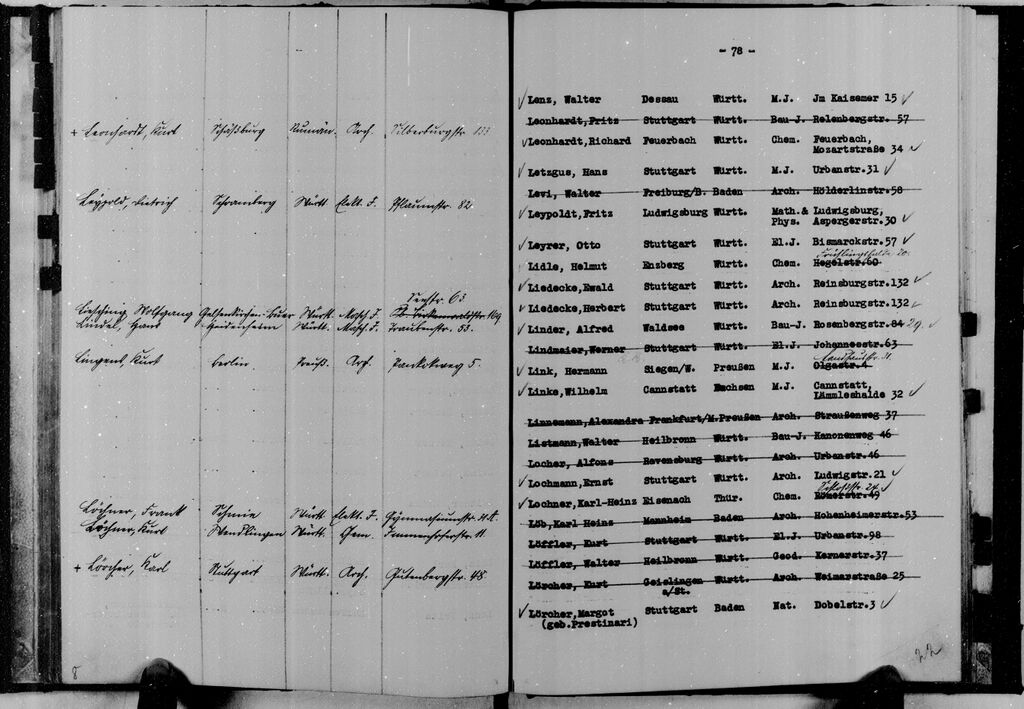 + Leonhardt, Kurt Schäßburg Rumän. Arch. Silberburgstr. 133
Leypold, Dietrich Schramberg Württ. Elekt. J. Pflaumstr. 82
Seestr. 63
Liesching, Wolfgang Gelsenkirchen-Buer Württ. Masch J.
Lindel, Hans Heidenheim Württ. Masch J. Traubenstr. 53.
Lingens, Kurt Berlin Preuß. Arch. Pankokweg 5.
Löchner, Frank Schmie Württ. Elekt. J. Gymnasiumstr.
Löchner, Kurt Wendlingen Württ. Gem. Immenhoferstr. 11
+ Lörcher, Karl Stuttgart Württ. Arch. Gutenbergstr. 48
8
- 78 -
Lenz, Walter Dessau Württ. M.J. Jm Kaisemer 15
Leonhardt,Fritz Stuttgart Württ. Bau-J. Relenbergstr. 57
Leonhardt,Richard Feuerbach Württ. Chem. Feuerbach,
Mozartstraße 34
Letzgus, Hans Stuttgart Württ. M.J. Urbanstr.31
Levi, Walter Freiburg/B. Baden Arch. Hölderlinstr.58
Leypoldt,Fritz Ludwigsburg Württ. Math.& Ludwigsburg,
Phys. Aspergerstr.30
Leyrer, Otto Stuttgart Württ. El.J. Bismarckstr.57
Frühlingshalde 20.
Lidle, Helmut Enzberg Württ. Chem. Hegelstr.60
Liedecke,Ewald Stuttgart Württ. Arch. Reinsburgstr.132
Liedecke,Herbert Stuttgart Württ. Arch. Reinsburgstr.132
Linder, Alfred Waldsee Württ. Bau-J. Rosenbergstr.84 29
Lindmaier,Werner Stuttgart Württ. El.J. Johannesstr.63
Landhausstr.
Link, Hermann Siegen/W. Preußen M.J. Olgastr.4
Linke,Wilhelm Cannstatt Sachsen M.J. Cannstatt,
Lämmleshalde 32
Linnemann,Alexandra Frankfurt/M.Preußen Arch. Straußenweg 37
Listmann,Walter Heilbronn Württ. Bau-J. Kanonenweg 46
Locher, Alfons Ravensburg Württ. Arch. Urbanstr.46
Lochmann,Ernst Stuttgart Württ. Arch. Ludwigstr.21
Lochner,Karl-Heinz Eisenach Thür. Chem. Römerstr.49
Löb,Karl Heinz Mannheim Baden Arch. Hohenheimerstr.53
Löffler, Kurt Stuttgart Württ. El.J. Urbanstr.98
Löffler, Walter Heilbronn Württ. Geod. Kernerstr.37
Lörcher, Kurt Geislingen Württ. Arch. Weimarstraße 25
a/St.
Lörcher,Margot Stuttgart Baden Nat. Dobelstr.3
(geb.Prestinari)
22